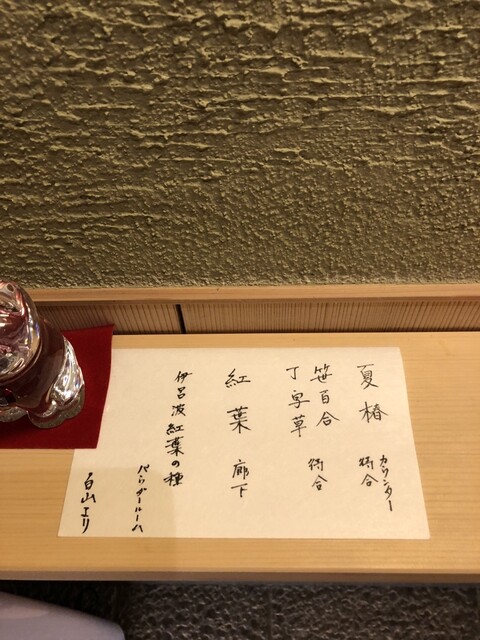 夏椿 カウンター
待合
笹百合
丁字草 待合
紅葉 廊下
伊呂波紅葉の種
パウダールーム
白山エリ